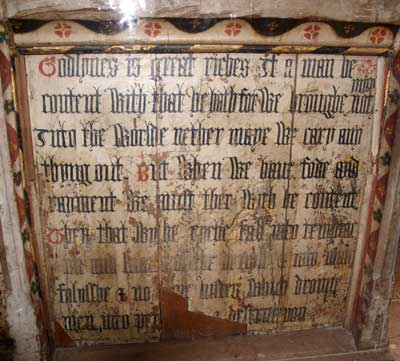 Godlynes is great riches If a man be
content with that he hath for we brought not
Into the worlde nether maye we cary ani
thyng out But when we haue fode and
rayment we must ther with be content
They that wyl be ryche fall into
into
folysshe & no lustes which drowne
men into per &